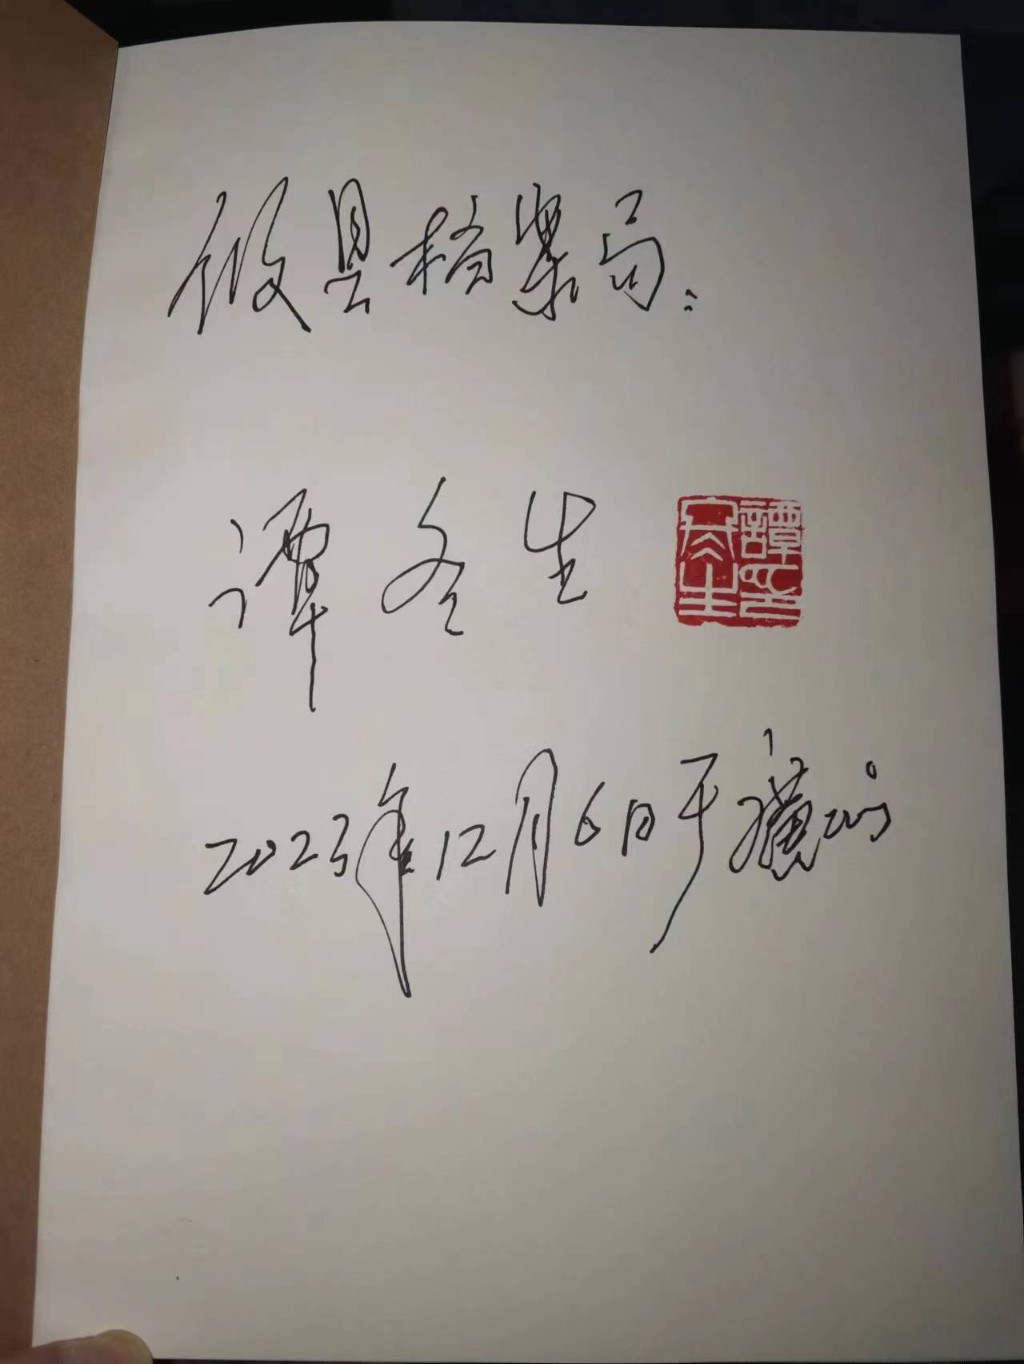 攸县档案局：
谭冬生
譚冬生印
2023年12月6日于